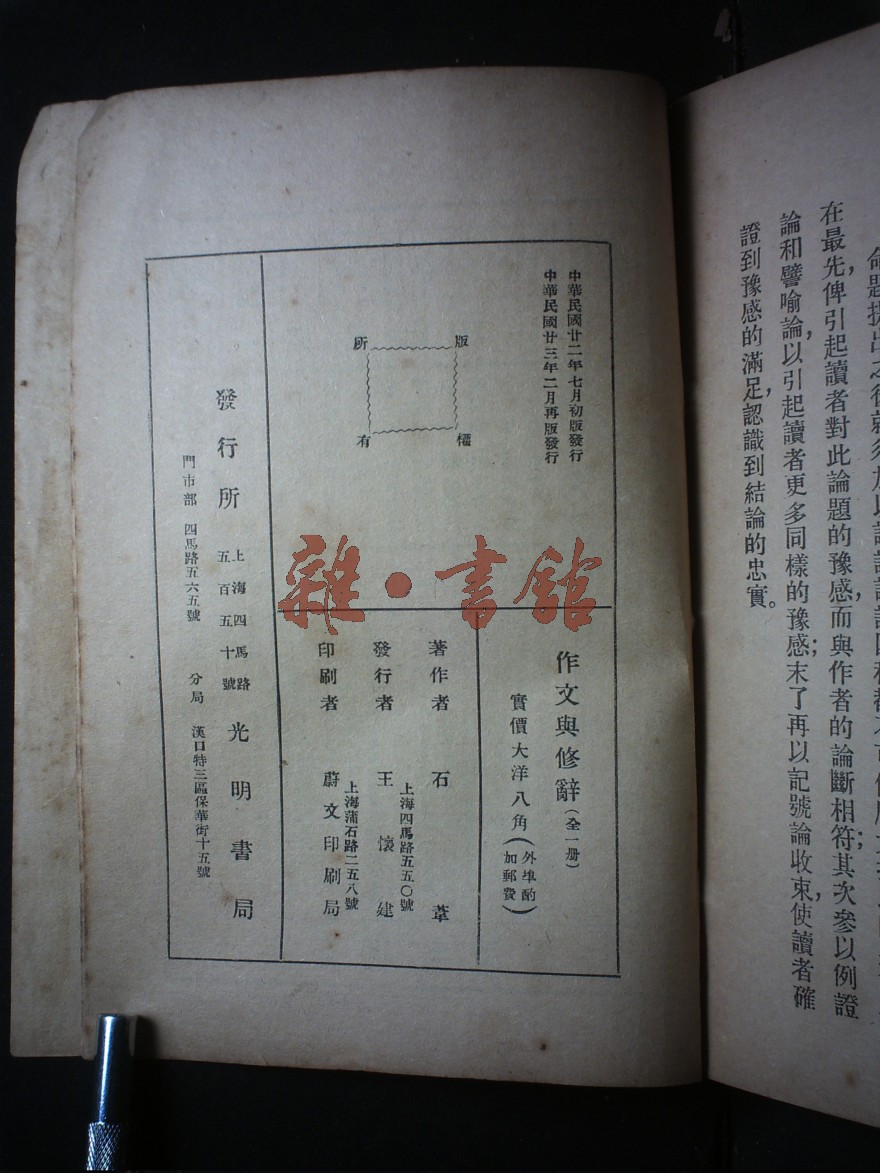 在最先,俾引起讀者對此論題的豫感,而與作者的論斷相符;其次參以例證
論和譬喻論,以引起讀者更多同樣的豫感;末了再以記號論收束,使讀者確
證到豫感的滿足,認識到結論的忠實。
中華民國廿二年七月初版發行
中華民國廿三年二月再版發行
版權所有
作文與修辭(全一册)
實價大洋八角(外埠酌加郵費)
著作者 石葦
發行者 上海四馬路五五〇號 王懷建
印刷者 上海蒲石路二五八號 蔚文印刷局
發行所 上海四馬路五百五十號 光明書局
門市部 四馬路五六五號 分局 漢口特三區保華街十五號
雜·書館